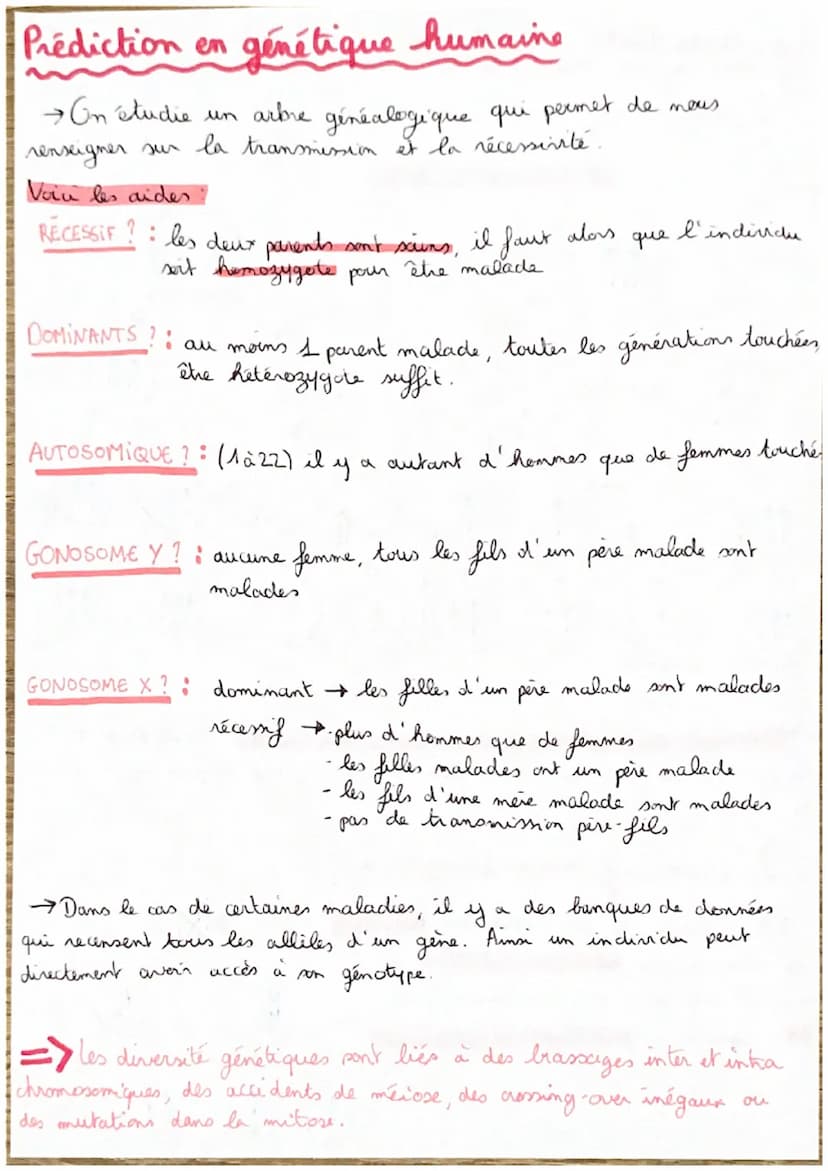 Prédiction en génétique humaine
→ On étudie un arbre généalogique qui permet de nous
renseigner sur la transmission et la récessivité.
Voici les aides :
RÉCESSIF ? : les deux parents sont sains, il faut alors que l'individu
soit homozygote pour être malade
DOMINANTS ? : au moins 1 parent malade, toutes les générations touchées,
être hétérozygote suffit.
AUTOSOMIQUE ? : (1 à 22) il y a autant d'hommes que de femmes touché
GONOSOME Y ? : aucune femme, tous les fils d'un père malade sont
malades
GONOSOME X ? : dominant → les filles d'un père malade sont malades
récessif → - plus d'hommes que de femmes
- les filles malades ont un père malade
- les fils d'une mère malade sont malades
- pas de transmission père-fils
→ Dans le cas de certaines maladies, il y a des banques de données
qui recensent tous les allèles d'un gène. Ainsi un individu peut
directement avoir accès à son génotype.
=> Les diversité génétiques sont liés à des brassages inter et intra
chromosomiques, des accidents de méiose, des crossing-over inégaux ou
des mutations dans la mitose.